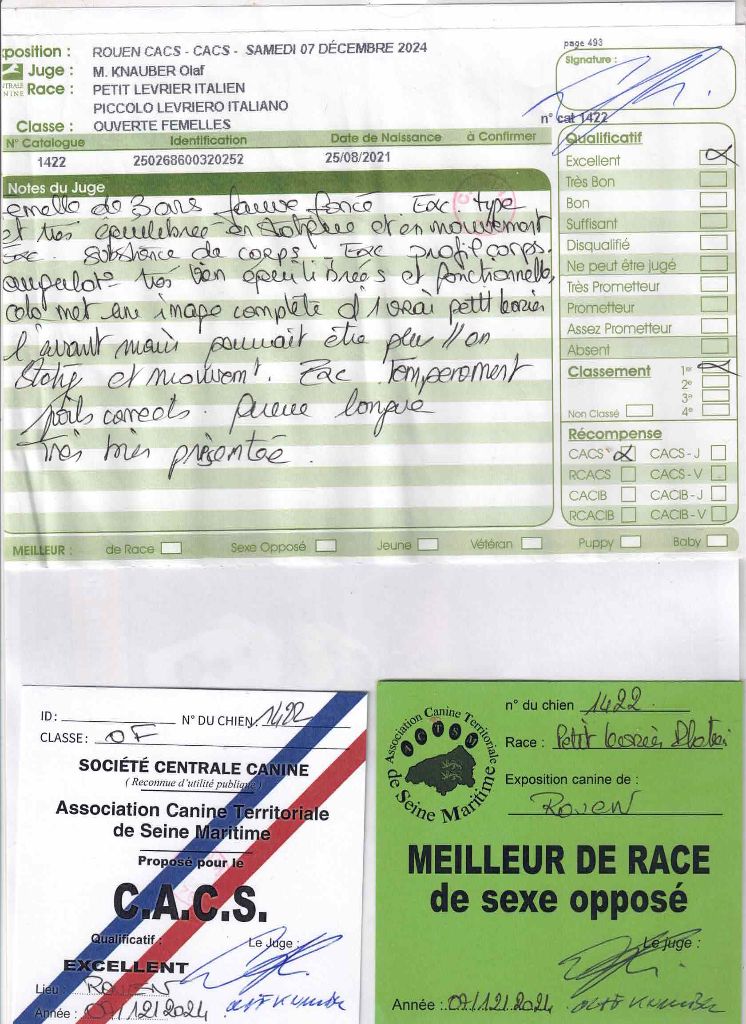 xposition : ROUEN CACS - CACS - SAMEDI 07 DÉCEMBRE 2024
page 493
Juge : M. KNAUBER Olaf
Signature :
NTRALE
NINE
Race : PETIT LEVRIER ITALIEN
PICCOLO LEVRIERO ITALIANO
Classe : OUVERTE FEMELLES
n° cat 1422
N° Catalogue Identification Date de Naissance à Confirmer
1422 250268600320252 25/08/2021
Qualificatif
Excellent
Très Bon
Bon
Suffisant
Disqualifié
Ne peut être jugé
Très Prometteur
Prometteur
Assez Prometteur
Absent
Classement 1er
2e
3e
Non Classé 4e
Récompense
CACS CACS - J
RCACS CACS - V
CACIB CACIB - J
RCACIB CACIB - V
Notes du Juge
emelle de 3 ans fauve foncé Exc type
et très équilibrée en statique et en mouvement
Exc. Substance de corps. Exc profil corps.
très bien équilibrées et fonctionnelle,
une image complète d'1 vrai petit
l'avant main pourrait être plus // en
et mouvemt. Exc. Temperament
poils corrects. queue longue
très bien présentée.
MEILLEUR : de Race Sexe Opposé Jeune Vétéran Puppy Baby
ID: N° DU CHIEN: 1422
CLASSE: OF
SOCIÉTÉ CENTRALE CANINE
( Reconnue d'utilité publique )
Association Canine Territoriale
de Seine Maritime
Proposé pour le
C.A.C.S.
Qualificatif : Le Juge :
EXCELLENT
Lieu : ROUEN
Année : 07/12/2024 OLAF KNAUBER
Association Canine Territoriale
ACTSM
de Seine Maritime
n° du chien 1422
Race : Petit
Exposition canine de :
ROUEN
MEILLEUR DE RACE
de sexe opposé
Le juge :
Année : 07/12/2024 OLAF KNAUBER